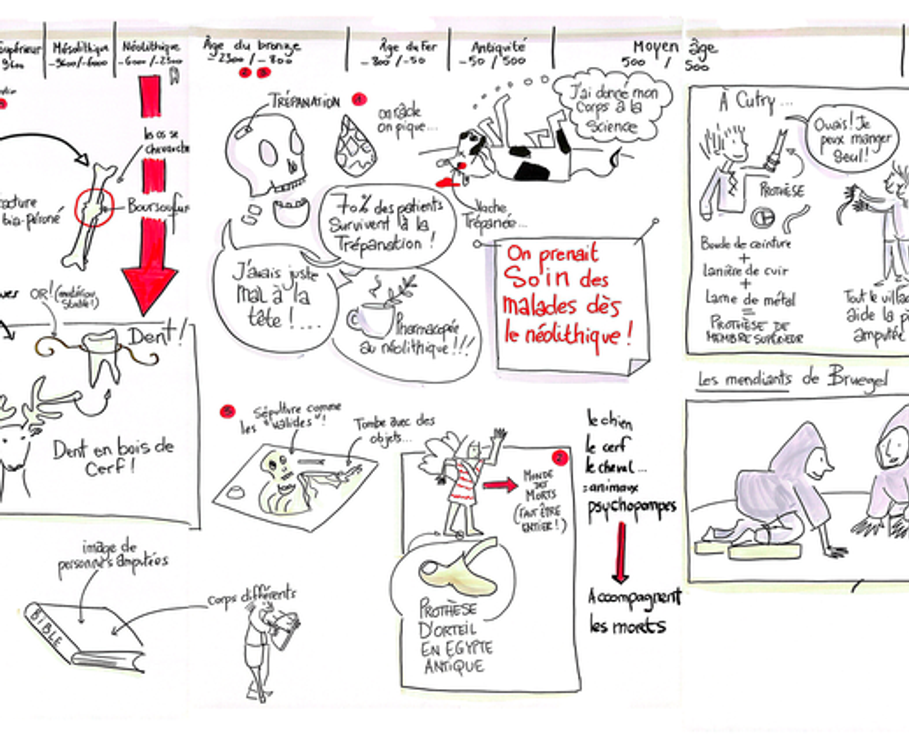 Supérieur
9600
Mésolithique
-9600/-6000
Néolithique
-6000/-2300
Âge du bronze
-2300 / -800
Âge du Fer
-800/-50
Antiquité
-50/500
Moyen âge
500 / 500
les os se
chevauche
Boursouflur
OR! (matériau
stable!)
Dent!
Dent en bois de
Cerf!
image de
personnes amputées
BIBLE
corps différents
TRÉPANATION
1
on râcle
on pique...
J'ai donné mon
corps à la
Science
Vache
Trépanée...
70% des patients
Survivent à la
Trépanation!
J'avais juste
mal à la
tête!....
Pharmacopée
au néolithique!!!
On prenait
Soin des
malades dès
le néolithique!
Sépulture comme
les "valides"!
Tombe avec des
objets...
2
MONDE
DES
MORTS
(FAUT ÊTRE
ENTIER!)
PROTHÈSE
D'ORTEIL
EN EGYPTE
ANTIQUE
le chien
le cerf
le cheval...
: animaux
psychopompes
Accompagnent
les morts
À Cutry...
Ouais! Je
peux manger
Seul!
PROTHÈSE
Boucle de ceinture
+
Lanière de cuir
+
Lame de métal
=
PROTHÈSE DE
MEMBRE SUPÉRIEUR
Tout le villa
aide la p
amputée
Les mendiants de Bruegel